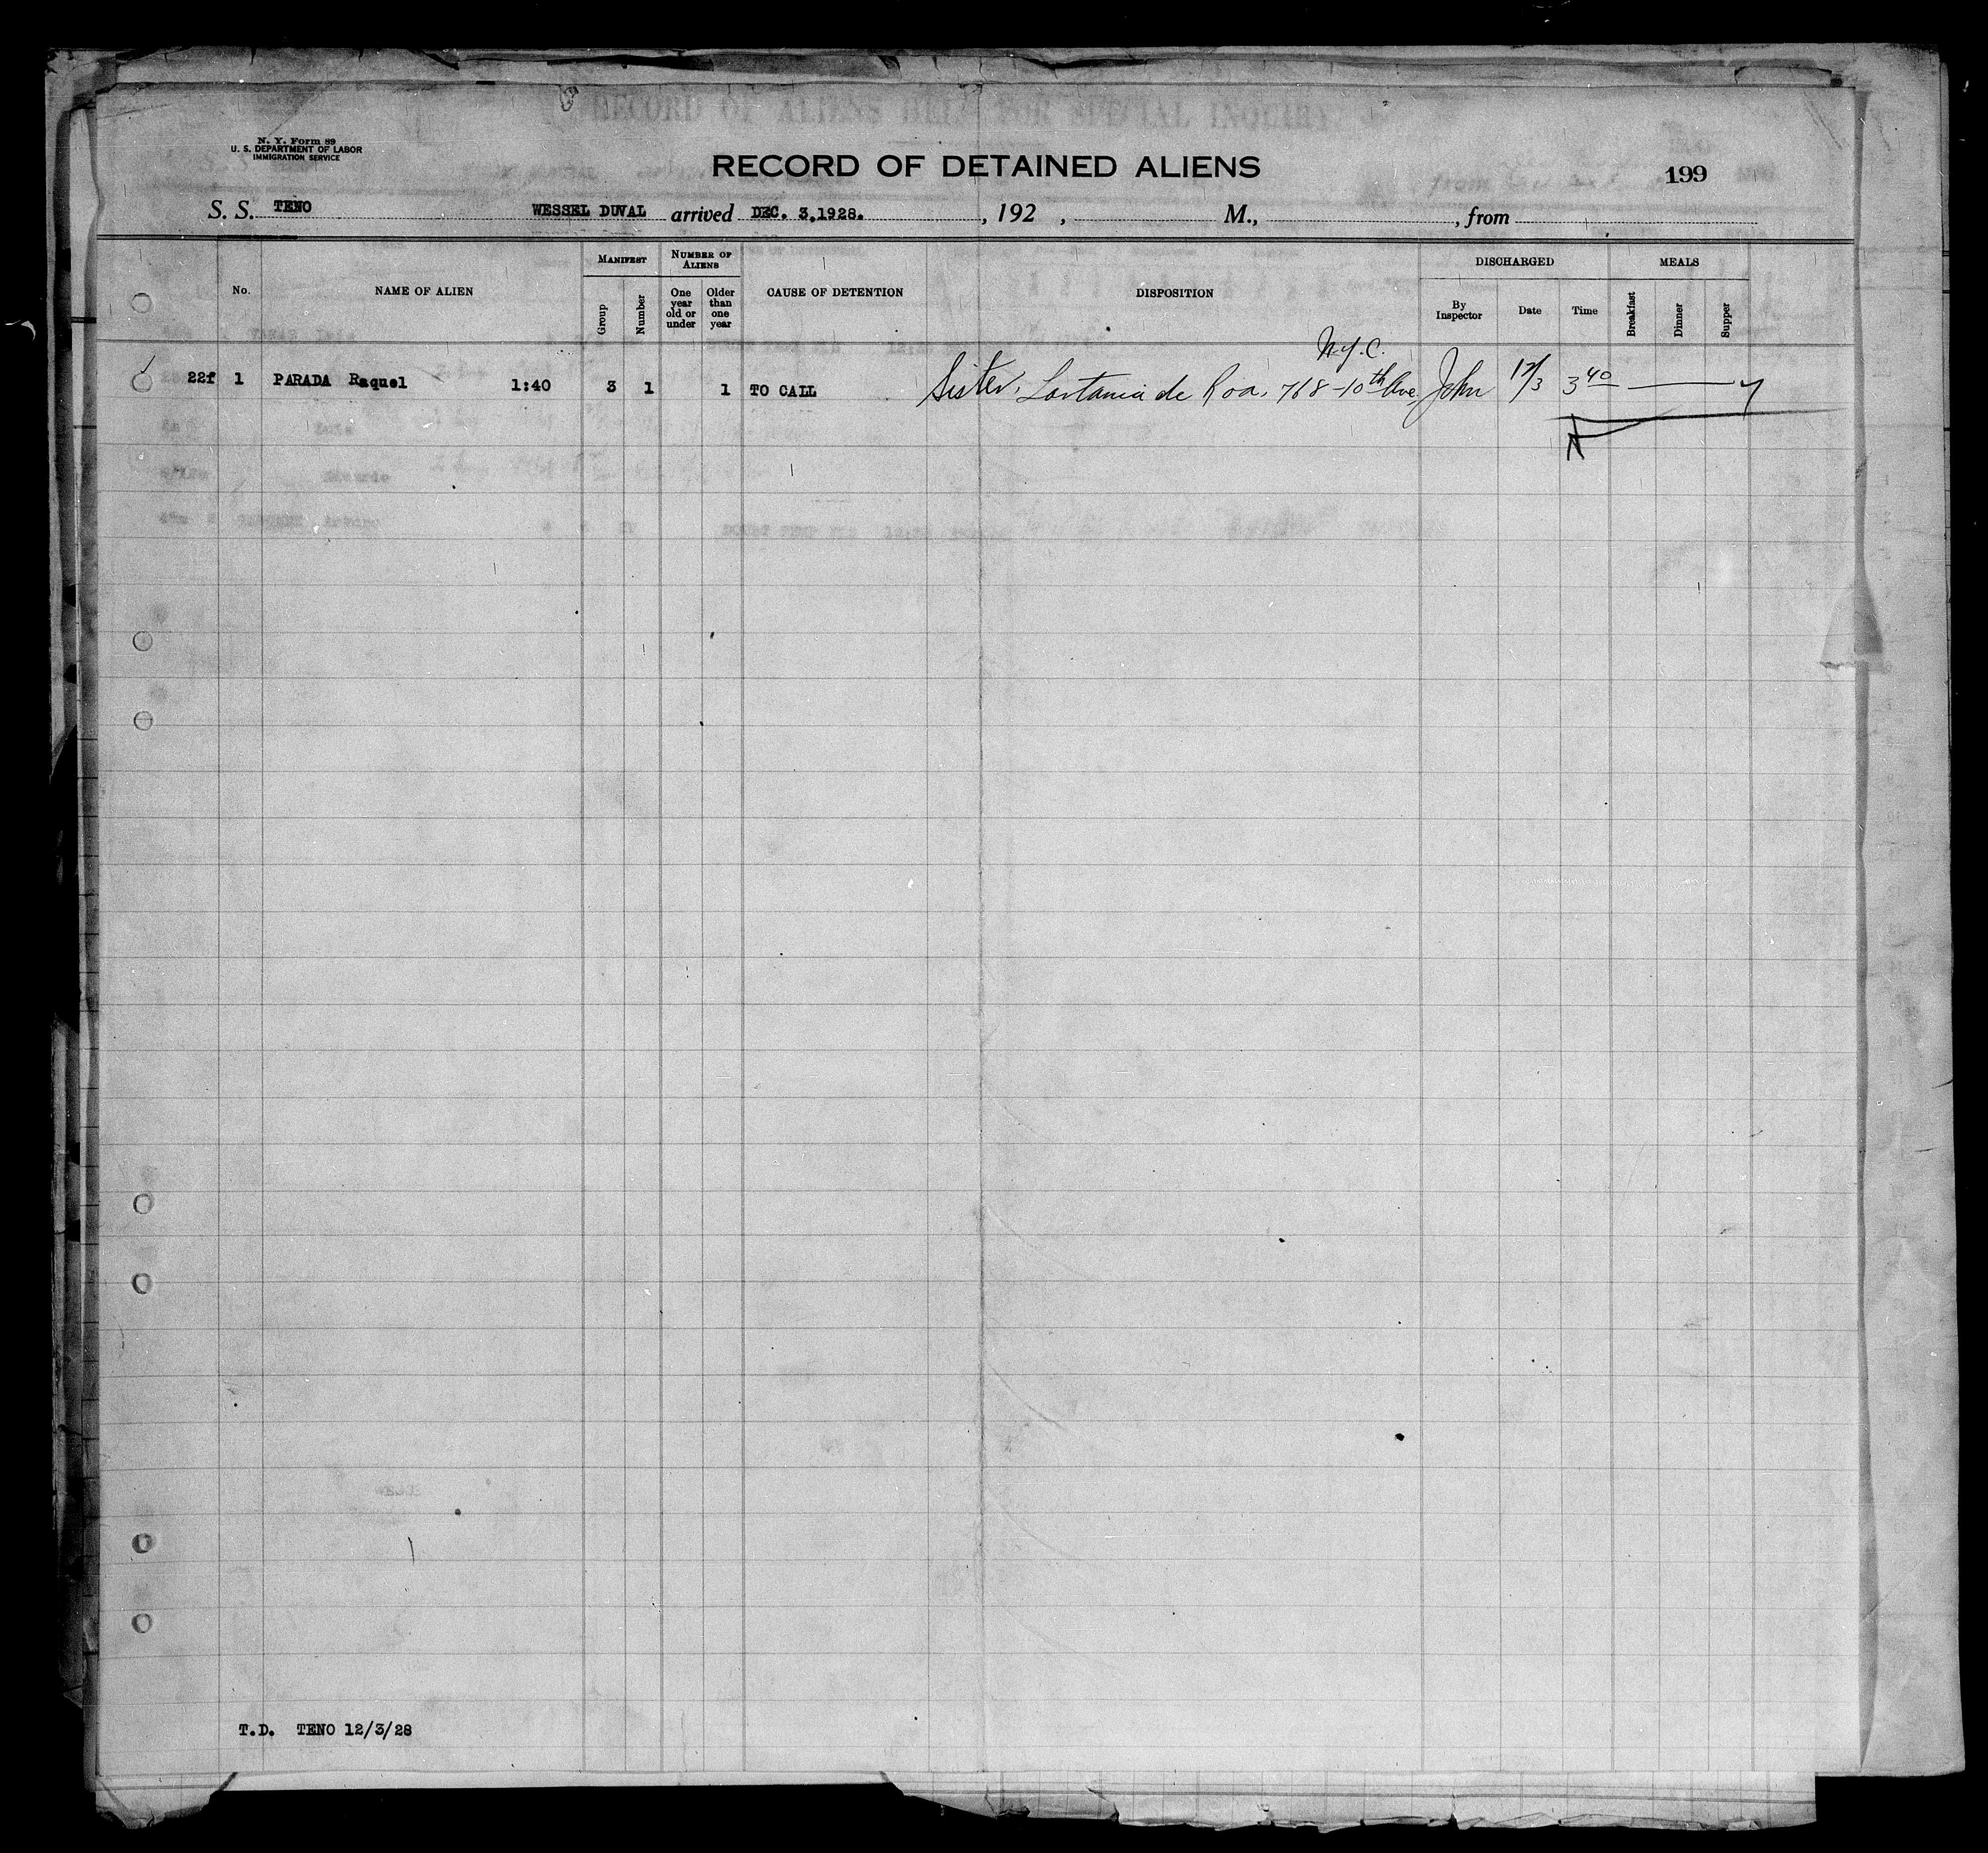 N. Y. Form 89
U. S. DEPARTMENT OF LABOR
IMMIGRATION SERVICE
RECORD OF DETAINED ALIENS
199
S. S. TENO WESSEL DUVAL arrived DEC. 3,1928. , 192 , M., , from
No. NAME OF ALIEN MANIFEST Group Number NUMBER OF ALIENS One year old or under Older than one year CAUSE OF DETENTION DISPOSITION DISCHARGED By Inspector Date Time MEALS Breakfast Dinner Supper
N.Y.C.
22f 1 PARADA Raquel 1:40 3 1 1 TO CALL Sister, de Roa, 768-10th Ave. John 12/3 3 40
T.D. TENO 12/3/28